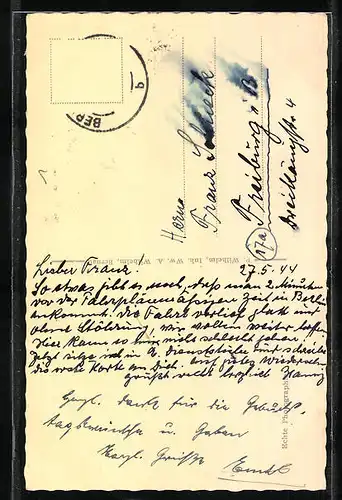 BER
b
Herrn
Franz
Freiburg i B
17a
Wilhelm, Inh. Ww. A. Wilhelm, Bernau
Echte Photograph
Lieber Franz! 27.5.44
So etwas gibt es noch, daß man 2 Minuten
vor der Fahrplanmäßigen Zeit in Berlin
ankommt. Die Fahrt verlief glatt und
ohne Störung, wir wollen weiter hoffen
Hier kann es mir nicht schlecht gehen.
Jetzt sitze ich in d. und schreibe
die erste Karte an Dich. Auf Wiedersehen
grüßt recht herzlich
Herzl. Dank für die Geburts-
tagswünsche u. Gaben
Herzl. Grüße